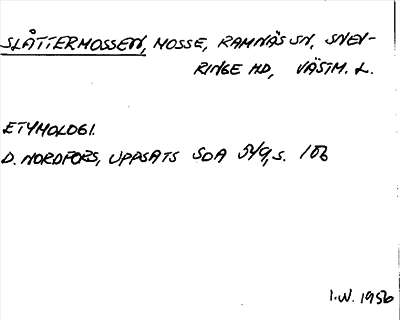 SLÅTTERMOSSEN, MOSSE, RAMNÄS SN, SNEV-
RINGE HD, VÄSTM. L.
ETYMOLOGI.
D. NORDFORS, UPPSATS SOA 549, s. 106
I.W. 1956